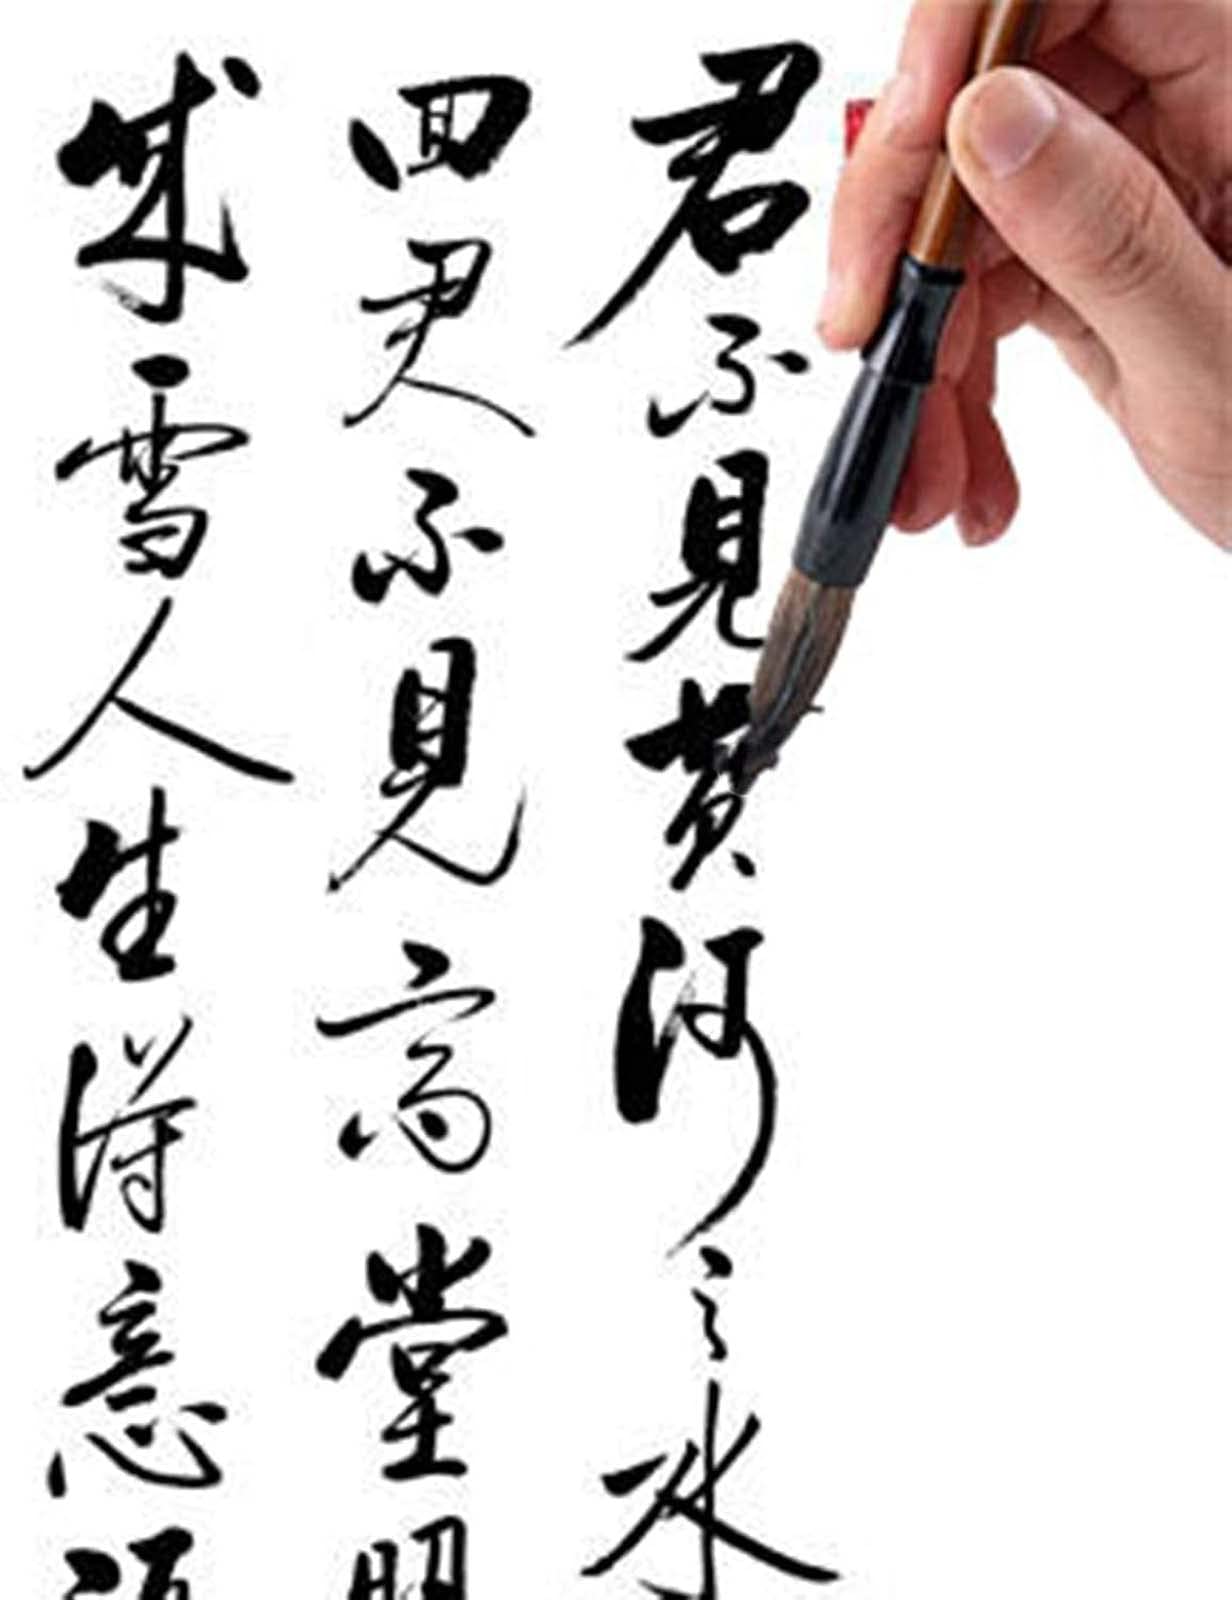 君不見黃河之水
回君不見高堂明
成雪人生得意須